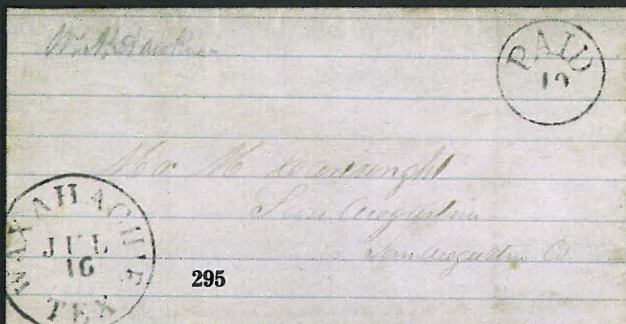 PAID
10
Mr M Cartwright
San Augustin
San Augustin Co
WAXAHACHIE
JUL
16
TEX
295